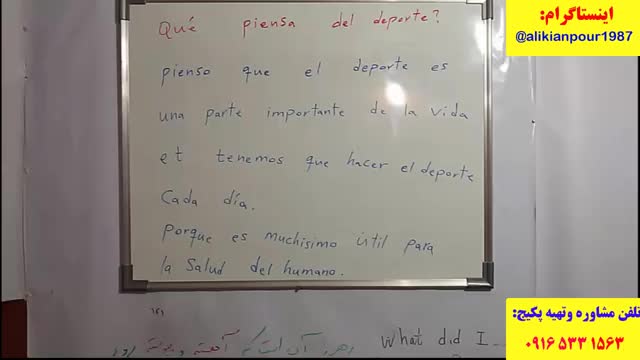 اینستاگرام:
@alikianpour1987
Qué piensa del deporte?
pienso que el deporte es
una parte importante de la vida
et tenemos que hacer el deporte
Cada día.
Porque es muchisimo útil para
la Salud del humano.
What did I
تلفن مشاوره وتهیه پکیج:
۰۹۱۶ ۵۳۳ ۱۵۶۳